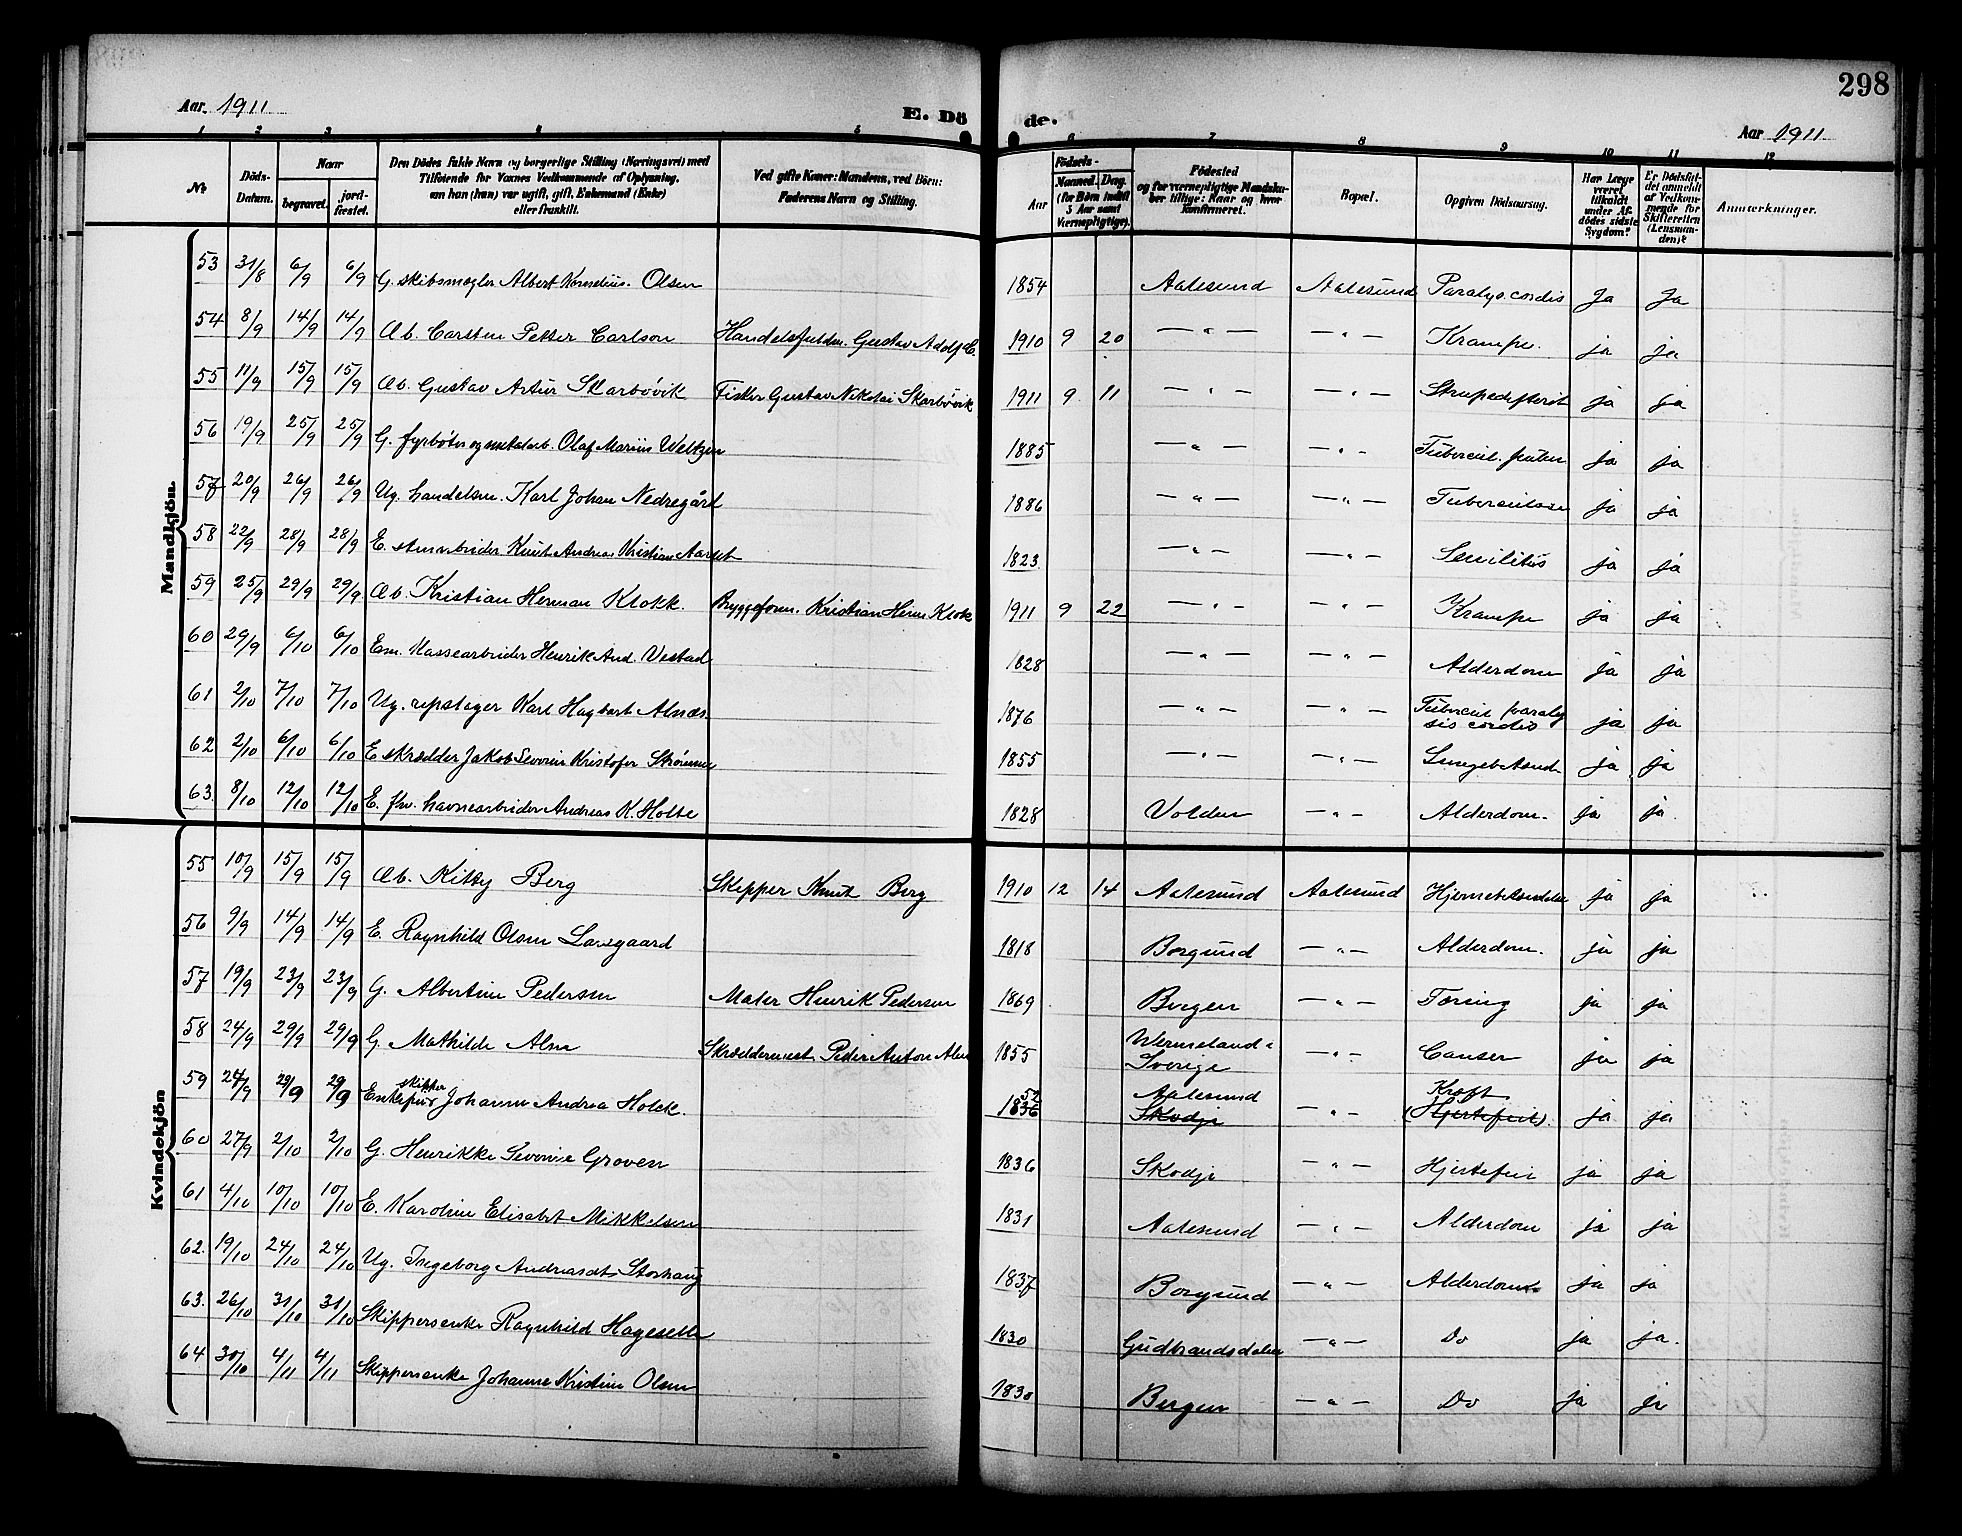 298
Aar. 1911
E. Dö de.
Aar 1911
1 2 3 4 5 6 7 8 9 10 11 12
No
Döds-Datum.
Naar
begravet. jord-fæstet.
Den Dödes fulde Navn og borgerlige Stilling (Næringsvei) med
Tilföiende for Voxnes Vedkommende af Oplysning,
om han (hun) var ugift, gift, Enkemand (Enke)
eller fraskilt.
Ved gifte Koner: Mandens, ved Börn:
Faderens Navn og Stilling.
Födsels-
Aar Maaned. Dag.
(for Börn indtil
5 Aar samt
Værnepligtige).
Födested
og for værnepligtige Mandska-
ber tillige: Naar og hvor
konfirmeret.
Bopæl.
Opgiven Dödsaarsag.
Har Læge
været
tilkaldt
under Af-
dödes sidste
Sygdom?
Er Dödsfal-
det anmeldt
af Vedkom-
mende for
Skifteretten
(Lensman-
den)?
Anmærkninger.
Mandkjön.
53 31/8 6/9 6/9 G. skibsmægler Albert Kornelius. Olsen 1854 Aalesund Aalesund Paralys. cordis Ja Ja
54 8/9 14/9 14/9 Æb. Carsten Petter Carlson Handelsfuldm. Gustav Adolf C. 1910 9 20 — " — — " — Krampe. ja ja
55 11/9 15/9 15/9 Æb. Gustav Artur Skarbövik Fisker Gustav Nikolai Skarbövik 1911 9 11 — " — — " — Strupedifterit ja ja
56 19/9 25/9 25/9 G. fyrböter og metalarb. Olaf Marius Weltzen 1885 — " — — " — Tubercul. pulm ja ja
57 20/9 26/9 26/9 Ug. handelsm. Karl Johan Nedregård 1886 — " — — " — Tuberculose ja ja
58 22/9 28/9 28/9 E. stenarbeider Knut Andreas Kristian Aarset 1823 — " — — " — Senilitas ja ja
59 25/9 29/9 29/9 Æb. Kristian Herman Klokk. Bryggeform. Kristian Herm. Klokk 1911 9 22 — " — — " — Krampe ja ja
60 29/9 6/10 6/10 Em. Kassearbeider Henrik And. Vestad 1828 — " — — " — Alderdom ja ja
61 2/10 7/10 7/10 Ug. repslager Karl Hagbart Alnæs. 1876 — " — — " — Tubercul paraly
sis cordis ja ja
62 2/10 6/10 6/10 E skrædder Jakob Severin Kristofer Strömme 1855 — " — — " — Lungebetænd. ja ja
63. 8/10 12/10 12/10 E. fhv. havnearbeider Andreas K. Holte 1828 Volden — " — Alderdom. ja ja.
Kvindekjön
55 10/9 15/9 15/9 Æb. Kitty Berg Skipper Knut Berg 1910 12 14 Aalesund Aalesund Hjernebetændelse ja ja
56 9/9 14/9 14/9 E. Ragnhild Olsen Larsgaard 1818 Borgund — " — Alderdom. ja ja
57 19/9 23/9 23/9 G. Albertine Pedersen Maler Henrik Pedersen 1869 Bergen — " — Tæring ja ja
58 24/9 29/9 29/9 G. Mathilde Alm Skræddermest. Peder Anton Alm 1855 Wermeland i
Sverige — " — Cancer ja ja
59 24/9 29/9 29/9 Enkefru skipper Johanne Andrea Holck. 1836 52 Aalesund
Skodje — " — Kræft
(Hjertefeil). ja ja
60 27/9 2/10 2/10 G. Henrikke Severine Groven 1836 Skodje — " — Hjertefeil ja ja
61 4/10 10/10 10/10 E. Karoline Elisabet Mikkelsen 1831 Aalesund — " — Alderdom ja ja
62. 19/10 24/10 24/10 Ug. Ingeborg Andreasdt. Storhaug 1837 Borgund — " — Alderdom ja ja
63. 26/10 31/10 31/10 Skippersenke Ragnhild Hagesetle 1830 Gudbrandsdalen — " — Do ja ja.
64 30/10 4/11 4/11 Skippersenke Johanne Kristine Olsen 1830 Bergen — " — Do ja ja